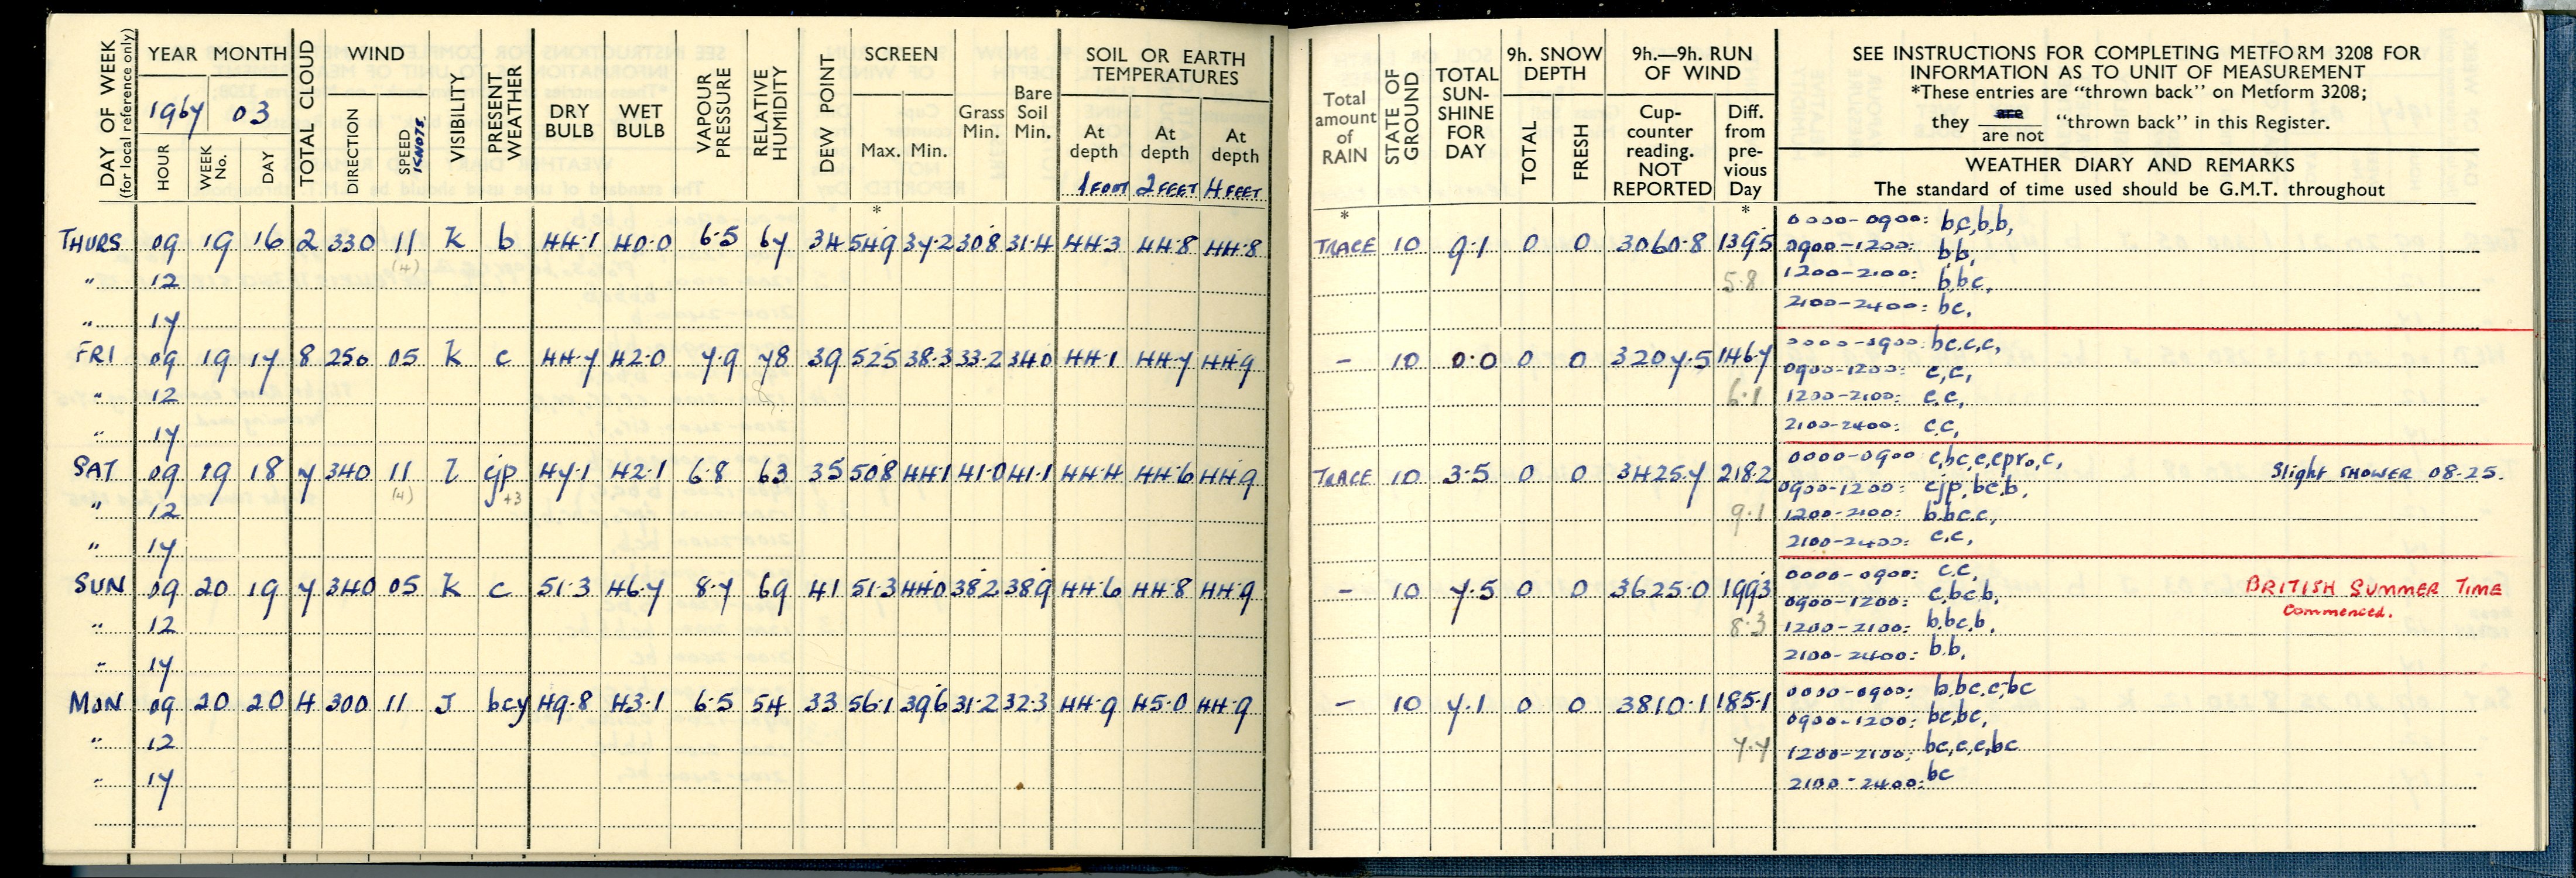 DAY OF WEEK
(for local reference only)
YEAR MONTH
1967 03
HOUR
WEEK No.
DAY
TOTAL CLOUD
WIND
DIRECTION
SPEED KNOTS.
VISIBILITY
PRESENT WEATHER
DRY BULB
WET BULB
VAPOUR PRESSURE
RELATIVE HUMIDITY
DEW POINT
SCREEN
Max. Min.
Grass Min.
Bare Soil Min.
SOIL OR EARTH
TEMPERATURES
At depth 1 FOOT
At depth 2 FEET
At depth 4 FEET
Total amount of RAIN
STATE OF GROUND
TOTAL SUN-SHINE FOR DAY
9h. SNOW DEPTH
TOTAL
FRESH
9h.—9h. RUN OF WIND
Cup-counter reading. NOT REPORTED
Diff. from pre-vious Day
SEE INSTRUCTIONS FOR COMPLETING METFORM 3208 FOR
INFORMATION AS TO UNIT OF MEASUREMENT
*These entries are "thrown back" on Metform 3208;
they are / are not "thrown back" in this Register.
WEATHER DIARY AND REMARKS
The standard of time used should be G.M.T. throughout
* * *
THURS 09 19 16 2 330 11 K b 44.1 40.0 6.5 67 34 54.9 37.2 30.8 31.4 44.3 44.8 44.8 TRACE 10 9.1 0 0 3060.8 139.5 0000-0900: bc,b,b,
(4) 0900-1200: b,b,
" 12 5.8 1200-2100: b,bc,
" 17 2100-2400: bc,
FRI 09 19 17 8 250 05 K c 44.7 42.0 7.9 78 39 52.5 38.3 33.2 34.0 44.1 44.7 44.9 - 10 0.0 0 0 3207.5 146.7 0000-0900: bc,c,c,
0900-1200: c,c,
" 12 6.1 1200-2100: c,c,
" 17 2100-2400: c,c,
SAT 09 19 18 7 340 11 l cjp 47.1 42.1 6.8 63 35 50.8 44.1 41.0 41.1 44.4 44.6 44.9 TRACE 10 3.5 0 0 3425.7 218.2 0000-0900: c,bc,c,cpro,c, Slight SHOWER 08-25.
(4) +3 0900-1200: cjp,bc,b,
" 12 9.1 1200-2100: b,bc,c,
" 17 2100-2400: c,c,
SUN 09 20 19 7 340 05 K c 51.3 46.7 8.7 69 41 51.3 44.0 38.2 38.9 44.6 44.8 44.9 - 10 7.5 0 0 3625.0 199.3 0000-0900: c,c, BRITISH SUMMER TIME
0900-1200: c,bc,b, Commenced.
" 12 8.3 1200-2100: b,bc,b,
" 17 2100-2400: b,b,
MON 09 20 20 4 300 11 J bcy 49.8 43.1 6.5 54 33 56.1 39.6 31.2 32.3 44.9 45.0 44.9 - 10 7.1 0 0 3810.1 185.1 0000-0900: b,bc,c,bc
0900-1200: bc,bc,
" 12 7.7 1200-2100: bc,c,c,bc
" 17 2100-2400: bc